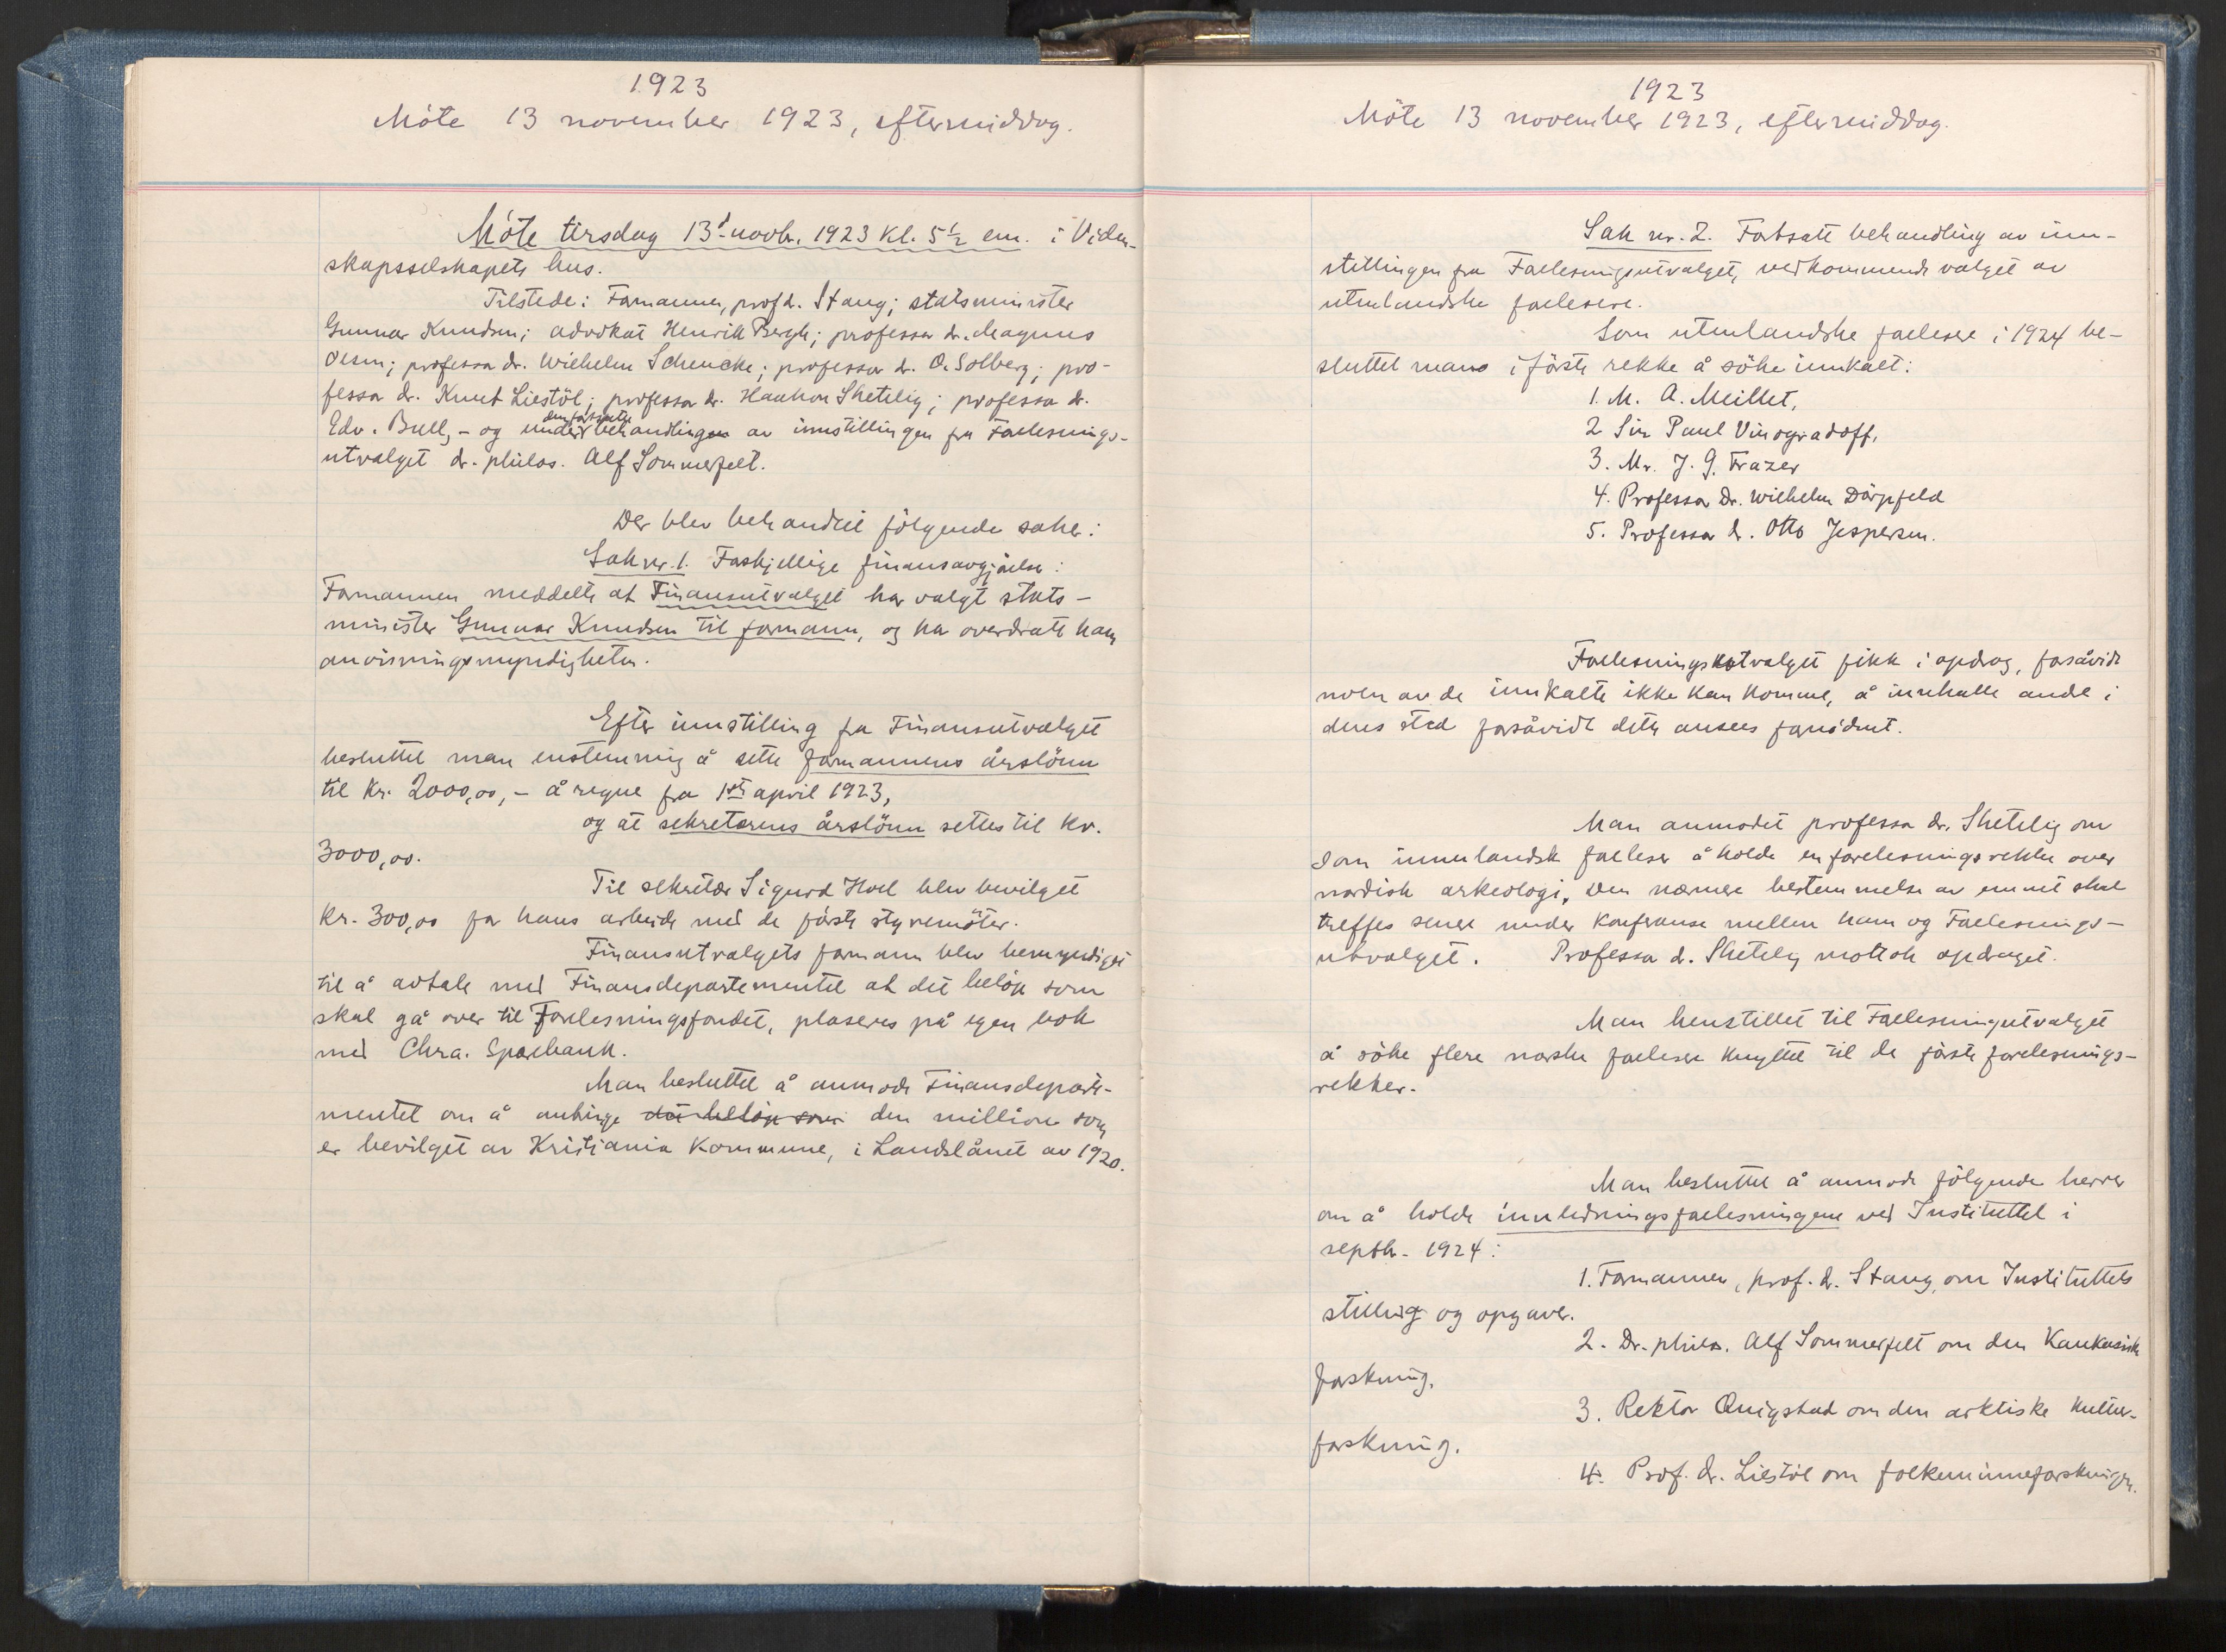 1923
Möte 13 november 1923, eftermiddag.
Möte tirsdag 13d novbr. 1923 kl. 5½ em. i Viden-
skapsselskapets hus.
Tilstede: Formannen, prof. dr. Stang; statsminister
Gunnar Knudsen; advokat Henrik Bergh; professor dr. Magnus
Olsen; professor dr. Wilhelm Schencke; professor dr. O. Solberg; pro-
fessor dr. Knut Liestöl; professor dr. Haakon Shetelig; professor dr.
Edv. Bull, - og under den fortsatte behandlingen av innstillingen fra Forelesnings-
utvalget dr. philos. Alf Sommerfelt.
Der blev behandlet fölgende saker:
Sak nr. 1. Forskjellige finansavgjörelser:
Formannen meddelte at Finansutvalget har valgt stats-
minister Gunnar Knudsen til formann, og har overdratt ham
anvisningsmyndigheten.
Efter innstilling fra Finansutvalget
besluttet man enstemmig å sette formannens årslönn
til kr. 2000,00, - å regne fra 1ste april 1923,
og at sekreterens årslönn settes til kr.
3000,00.
Til sekretær Sigurd Hoel blev bevilget
kr. 300,00 for hans arbeide med de förste styremöter.
Finansutvalgets formann blev bemyndiget
til å avtale med Finansdepartementet at det belöp som
skal gå over til Forelesningsfondet, plaseres på egen bok
med Chra. Sparebank.
Man besluttet å anmode Finansdeparte-
mentet om å anbringe det belöp som den million som
er bevilget av Kristiania Kommune, i Landslånet av 1920.
1923
Möte 13 november 1923, eftermiddag.
Sak nr. 2. Fortsatt behandling av inn-
stillingen fra Forelesningsutvalget, vedkommende valget av
utenlandske forelesere.
Som utenlandske forelesere i 1924 be-
sluttet man i förste rekke å söke innkalt:
1. M. A. Meillet,
2 Sir Paul Vinogradoff,
3. Mr. J. G. Frazer
4. Professor Dr. Wilhelm Dörpfeld
5. Professor dr. Otto Jespersen.
Forelesningsutvalget fikk i opdrag, forsåvidt
noen av de innkalte ikke kan komme, å innkalle andre i
deres sted forsåvidt dette ansees fornödent.
Man anmodet professor dr. Shetelig om
som innenlandsk foreleser å holde en forelesningsrekke over
nordisk arkeologi. Den nærmere bestemmelse av emnet skal
treffes senere under konferanse mellem ham og Forelesnings-
utvalget. Professor dr. Shetelig mottok opdraget.
Man henstillet til Forelesningsutvalget
å söke flere norske forelesere knyttet til de förste forelesnings-
rekker.
Man besluttet å anmode fölgende herrer
om å holde innledningsforelesningene ved Instituttet i
septbr. 1924:
1. Formannen, prof. dr. Stang, om Instituttets
stilling og opgaver.
2. Dr. philos. Alf Sommerfelt om den Kaukasiske
forskning.
3. Rektor Qvigstad om den arktiske kultur-
forskning.
4. Prof. dr. Liestöl om folkeminneforskningen.